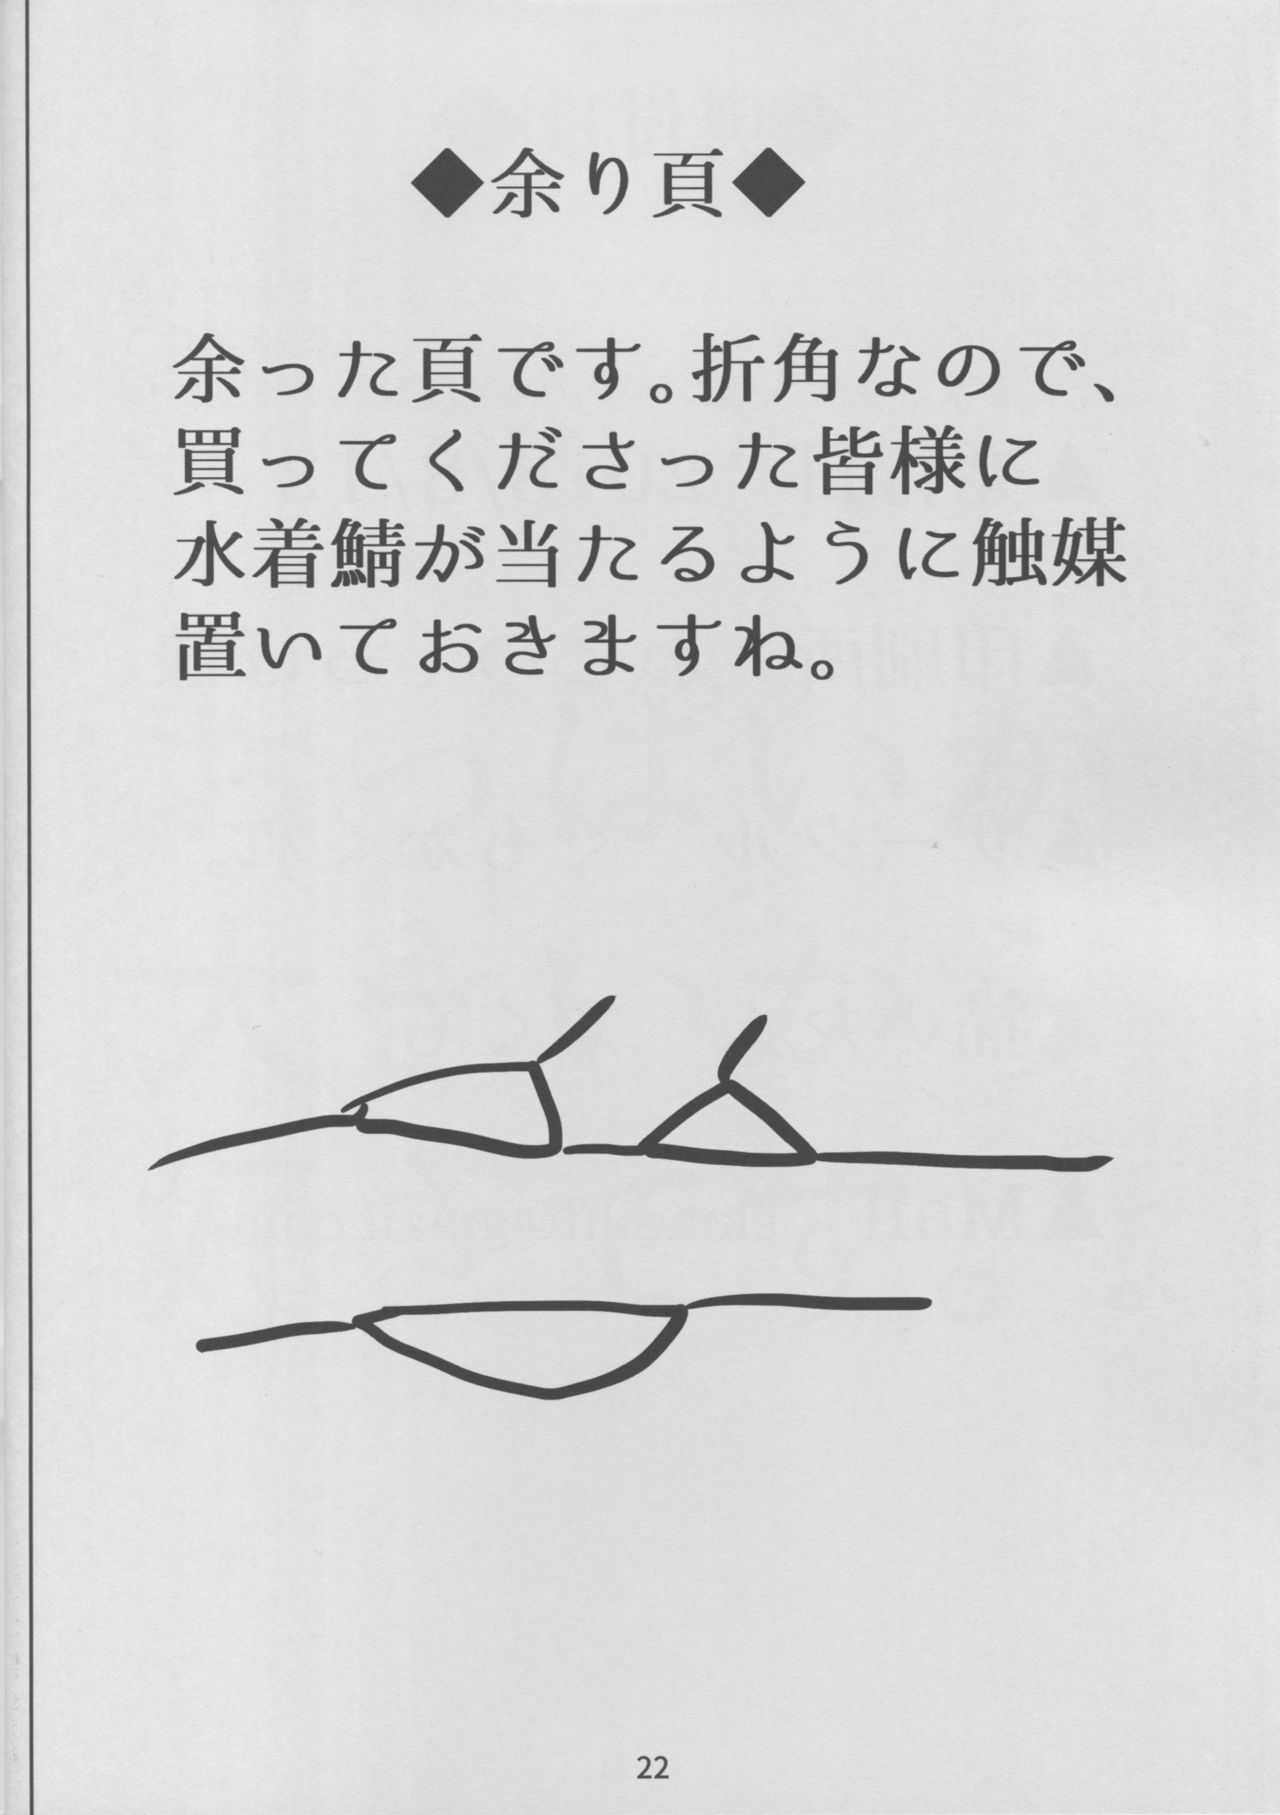 ◆余り頁◆
余った頁です。折角なので、
買ってくださった皆様に
水着鯖が当たるように触媒
置いておきますね。
22